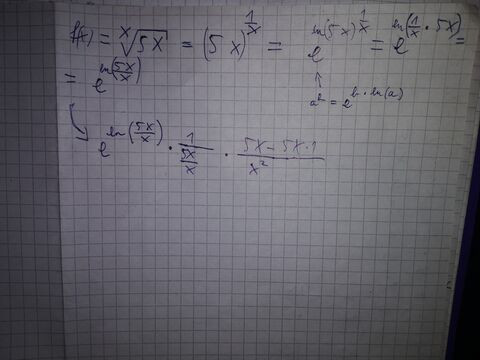 f(x) = ˣ√5x = (5x)^(1/x) = e^(ln(5x)^(1/x)) = e^(ln(1/x · 5x)) =
= e^(ln(5x/x))
a^b = e^(b·ln(a))
e^(ln(5x/x)) · 1/(5x/x) · (5x - 5x·1)/x²